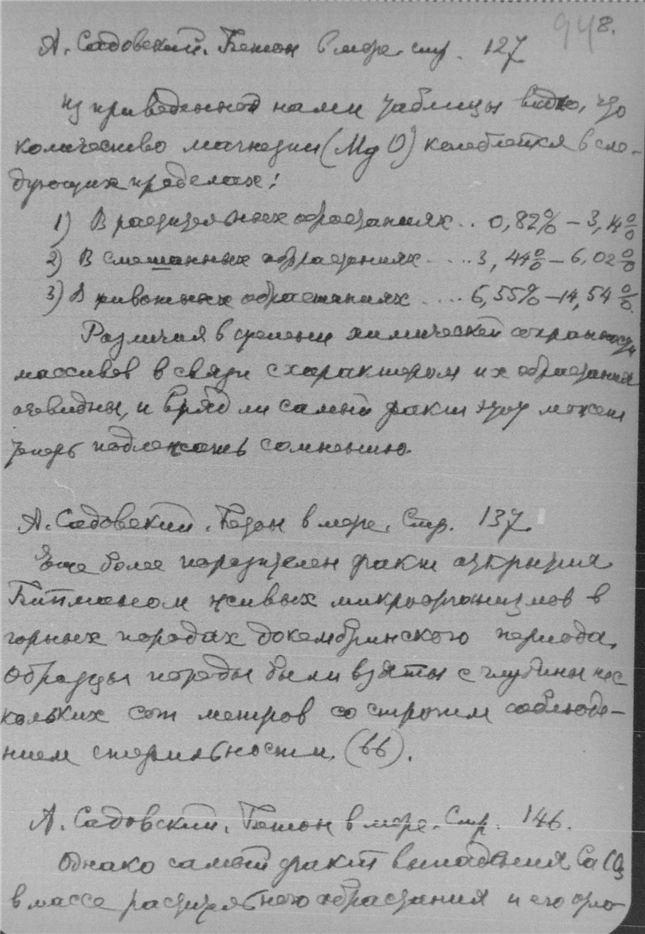 948.
А. Садовский. Бетон в море. стр. 127
Из приведенной нами таблицы видно, что
количество магнезии (MgO) колеблется в сле-
дующих пределах:
1) В растительных обрастаниях .. 0,82% – 3,14%
2) В смешанных обрастаниях .... 3,44% – 6,02%
3) В животных обрастаниях .... 6,55% – 14,54%.
Различия в степени химической сохранности
массивов в связи с характером их обрастания
очевидны, и вряд ли самый факт этот может
теперь подлежать сомнению.
А. Садовский. Бетон в море. Стр. 137
Еще более поразителен факт открытия
Липманом живых микроорганизмов в
горных породах докембрийского периода.
Образцы породы были взяты с глубины нес-
кольких сот метров со строгим соблюде-
нием стерильности. (66).
А. Садовский. Бетон в море. Стр. 146.
Однако самый факт выпадения CaCO3
в массе растительного обрастания и его